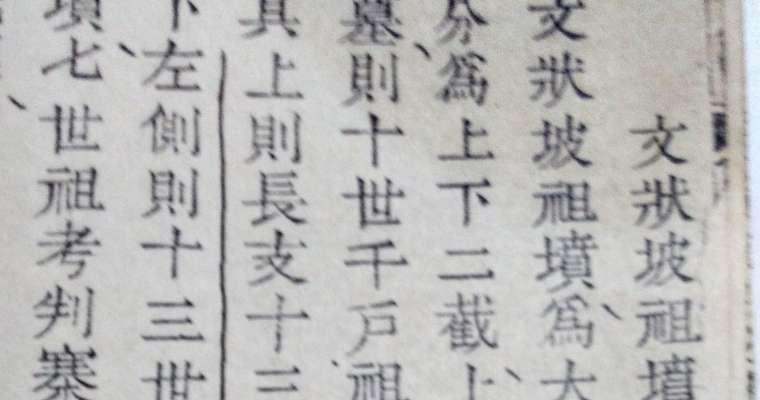 文狀坡祖墳
文狀坡祖墳爲大
分爲上下二截上
墓則十世千戶祖
其上則長支十三
下左側則十三世
墳七世祖考判寨